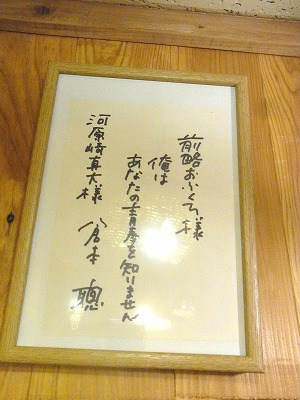 前略おふくろ様
俺は
あなたの青春を知りません
倉本聰
河原崎真大様